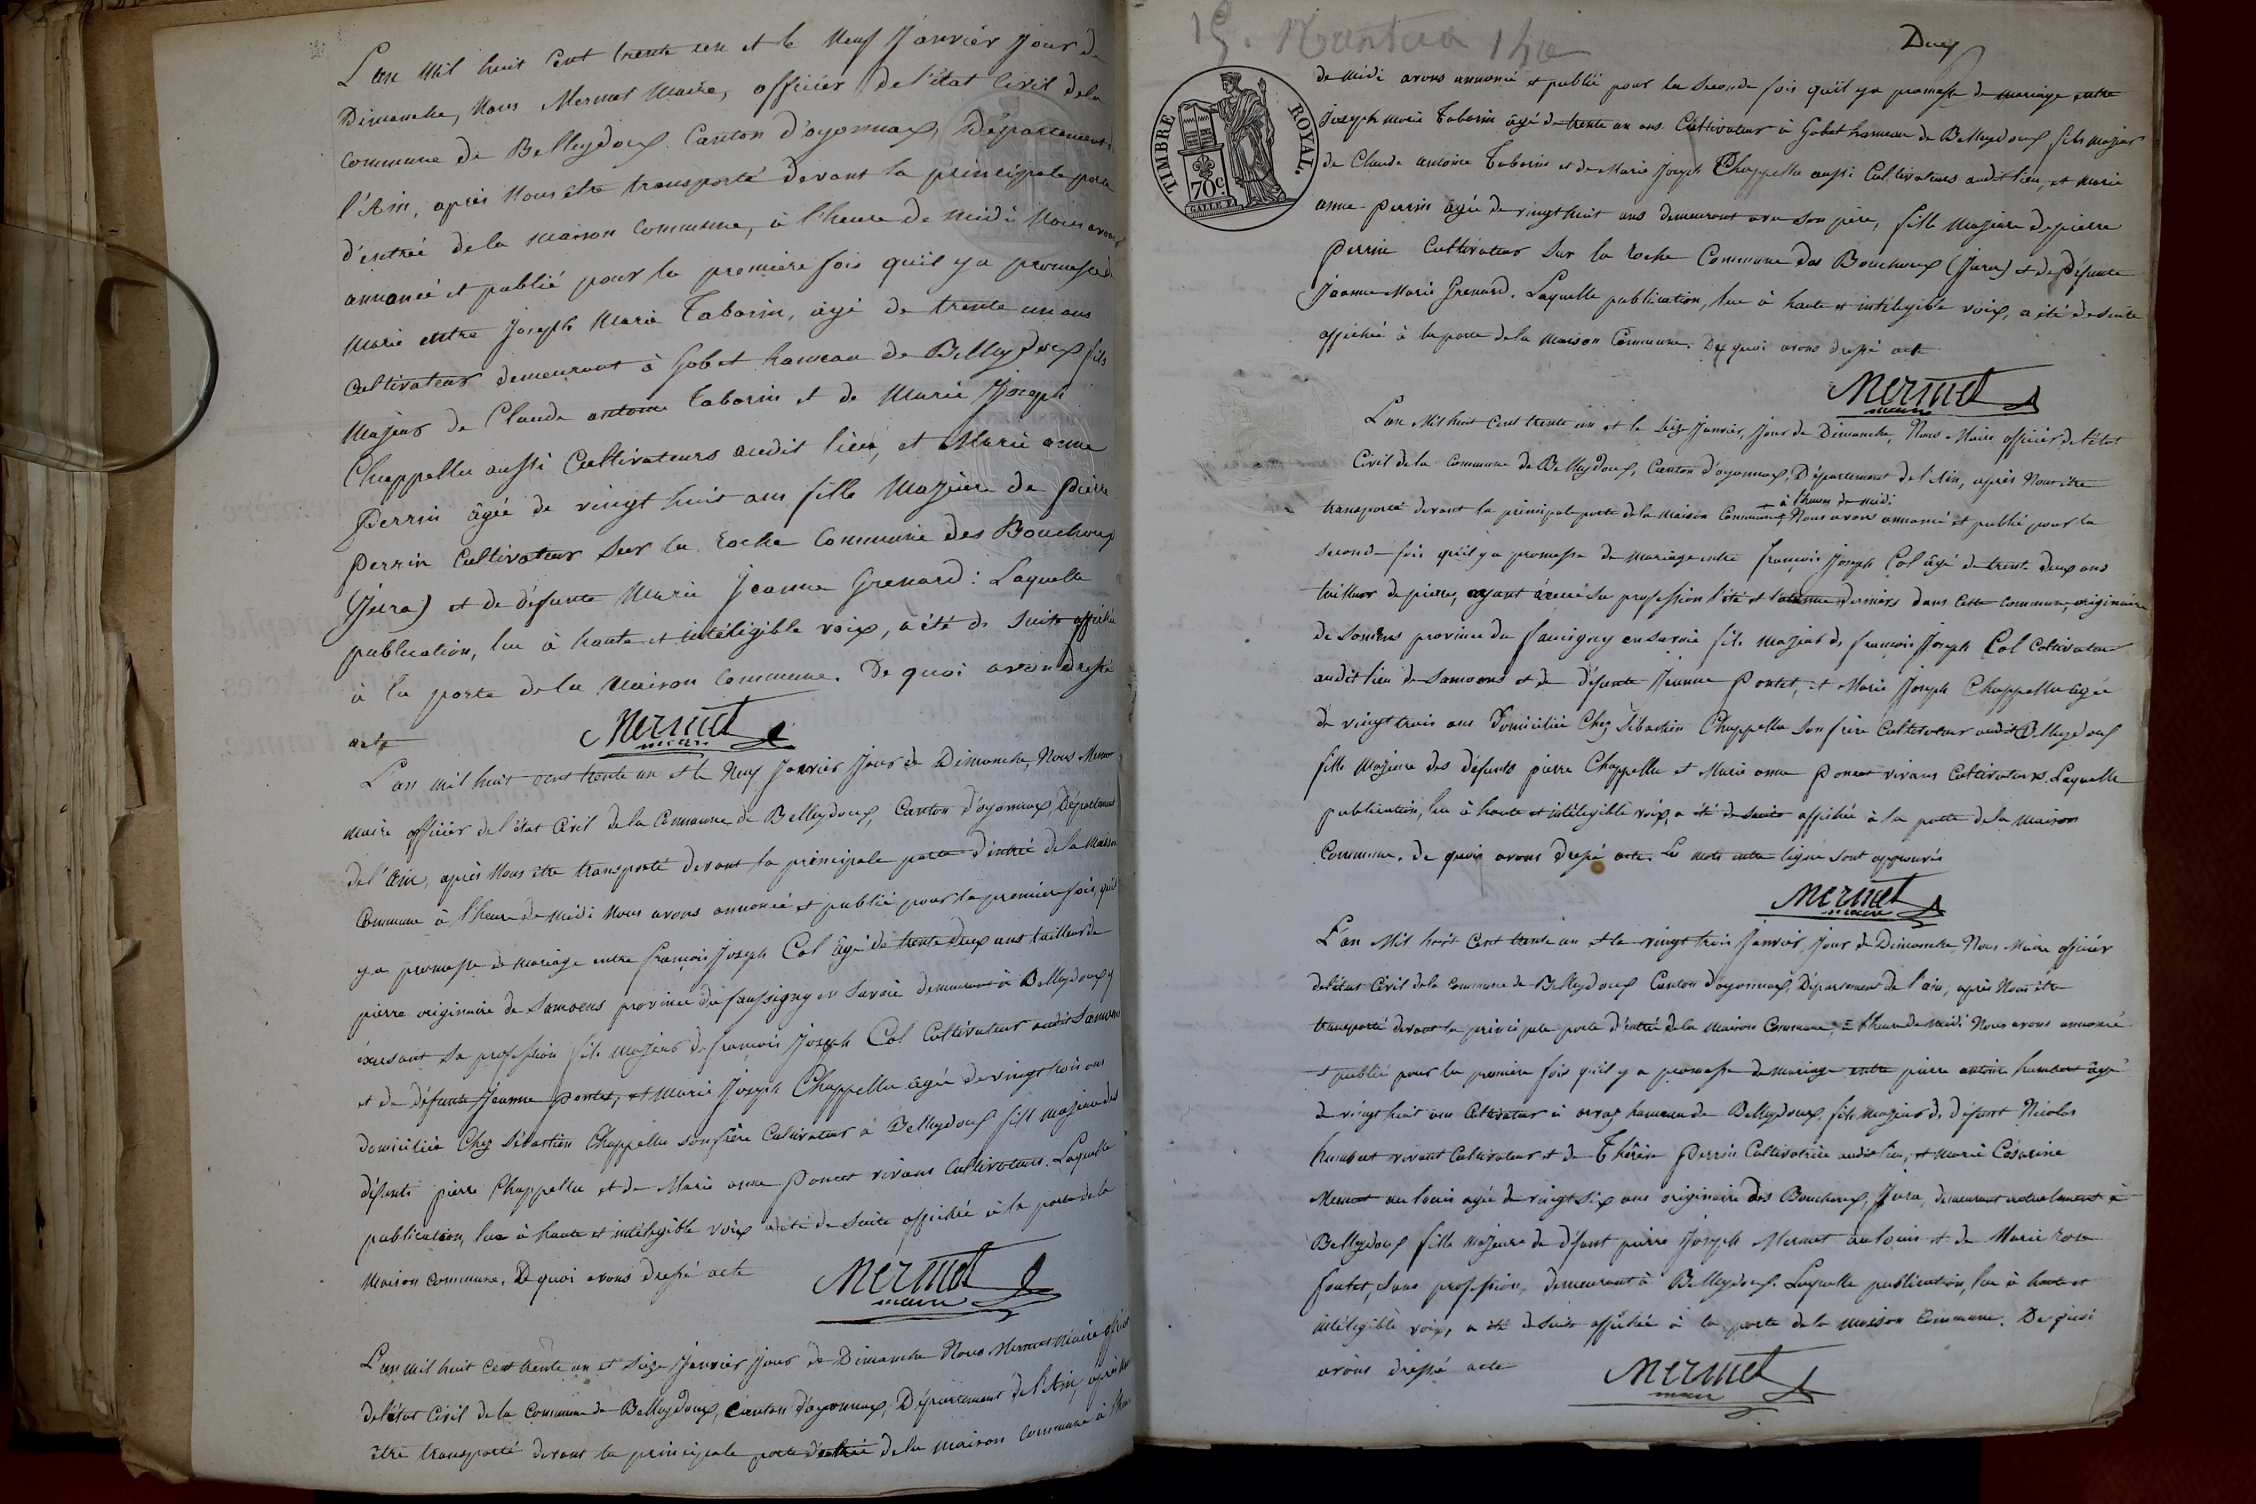 L'an Mil huit Cent trente un et le Neuf Janvier Jour de
Dimanche, Nous Mermet Maire, officier de l'état Civil dela
Commune de Belleydoux Canton d'oyonnax, Département
l'Ain, après Nous être transporté devant la principale porte
d'entrée dela Maison Commune, à l'heure de Midi Nous avons
annoncé et publié pour la première fois qu'il y a promesse de
Marié entre Joseph Marie Taborin, âgé de trente un ans
Cultivateur demeurant à Gobet hameau de Belleydoux fils
Majeur de Claude antoine Taborin et de Marie Joseph
Chappellu aussi Cultivateurs audit lieu, et Marie anne
Perrin âgée de vingt huit ans fille Majeure de Pierre
Perrin Cultivateur Sur la Roche Commune des Bouchoux
(Jura) et de défunte Marie Jeanne Grenard : Laquelle
publication, lue à haute et intéligible voix, a été de Suite affichée
à la porte dela Maison Commune. De quoi avons dressé
acte
Mermet
maire
L'an mil huit cent trente un et le Neuf Janvier Jour de Dimanche, Nous Mermet
maire officier de l'état Civil de la Commune de Belleydoux, Canton d'oyonnax, Département
de l'Ain, après Nous être transporté devant la principale porte d'entrée dela Maison
Commune à l'heure de Midi Nous avons annoncé et publié pour la première fois, qu'il
y a promesse de Mariage entre françois Joseph Col âgé de trente deux ans tailleur de
pierre originaire de Samoens province du faussigny en Savoie demeurant à Belleydoux y
éxersant Sa profession fils Majeur de françois Joseph Col Cultivateur audit Samoens
et de défunte Jeanne Pontet, et Marie Joseph Chappellu âgée de vingt trois ans
domiciliée Chez Sébastien Chappellu son frère Cultivateur à Belleydoux fille Majeure des
défunts pierre Chappellu et de Marie anne Poncet vivans Cultivateurs. Laquelle
publication, lue à haute et intéligible voix a été de Suite affichée à la porte de la
Maison Commune, De quoi avons dressé acte
Mermet
maire
L'an mil huit Cent trente un et Seize Janvier Jour de Dimanche Nous Mermet Maire officier
de l'état Civil de la Commune de Belleydoux, Canton d'oyonnax, Département de l'Ain, après Nous
être transporté devant la principale porte d'entrée dela Maison Commune à l'heure
15. Nantua
Deux
TIMBRE ROYAL.
70c
de Midi avons annoncé et publié pour la Seconde fois qu'il y a promesse de mariage entre
Joseph Marie Taborin âgé de trente un ans Cultivateur à Gobet hameau de Belleydoux fils Majeur
de Claude antoine Taborin et de Marie Joseph Chappellu aussi Cultivateurs audit lieu, et Marie
anne Perrin âgée de vingt huit ans demeurant avec son père, fille Majeure de pierre
Perrin Cultivateur Sur la Roche Commune des Bouchoux (Jura) et de Défunte
Jeanne Marie Grenard. Laquelle publication, lue à haute et intéligible voix, a été de Suite
affichée à la porte dela Maison Commune. De quoi avons dressé acte
Mermet
maire
L'an Mil huit Cent trente un et le Seize Janvier, Jour de Dimanche, Nous Maire officier de l'état
Civil de la Commune de Belleydoux, Canton d'oyonnax, Département de l'Ain, après Nous être
à l'heure de midi
transporté devant la principale porte dela Maison Commune, Nous avons annoncé et publié pour la
seconde fois qu'il y a promesse de Mariage entre françois Joseph Col âgé de trente deux ans
tailleur de pierre, ayant éxercé sa profession l'été et l'automne derniers dans cette commune, originaire
de Samoens province du faussigny en Savoie fils Majeur de françois Joseph Col Cultivateur
audit lieu de Samoens et de défunte Jeanne Pontet, et Marie Joseph Chappellu âgée
de vingt trois ans Domiciliée Chez Sébastien Chappellu son frère Cultivateur audit Belleydoux
fille Majeure des défunts pierre Chappellu et Marie anne Poncet vivans Cultivateurs. Laquelle
publication, lue à haute et intéligible voix, a été de Suite affichée à la porte dela Maison
Commune. de quoi avons dressé acte. Les mots entre ligne sont approuvés
Mermet
maire
L'an Mil huit Cent trente un et le vingt trois Janvier, Jour de Dimanche, Nous Maire officier
de l'état Civil dela Commune de Belleydoux Canton d'oyonnax, Département de l'ain, après Nous être
transporté devant la principale porte d'entrée dela Maison Commune, à l'heure de Midi Nous avons annoncé
et publié pour la première fois qu'il y a promesse de mariage entre pierre antoine humbert âgé
de vingt huit ans Cultivateur à orvaz hameau de Belleydoux, fils majeur de défunt Nicolas
humbert vivant Cultivateur et de Thérèse Perrin Cultivatrice audit lieu, et Marie Césarine
Mermet au louis agée de vingt Six ans originaire des Bouchoux, Jura, demeurant actuelement à
Belleydoux fille Majeure de défunt pierre Joseph Mermet au louis et de Marie Rose
, Sans profession, demeurant à Belleydoux. Laquelle publication, lue à haute et
intéligible voix, a été de Suite affichée à la porte dela Maison Commune. De quoi
avons dressé acte
Mermet
maire